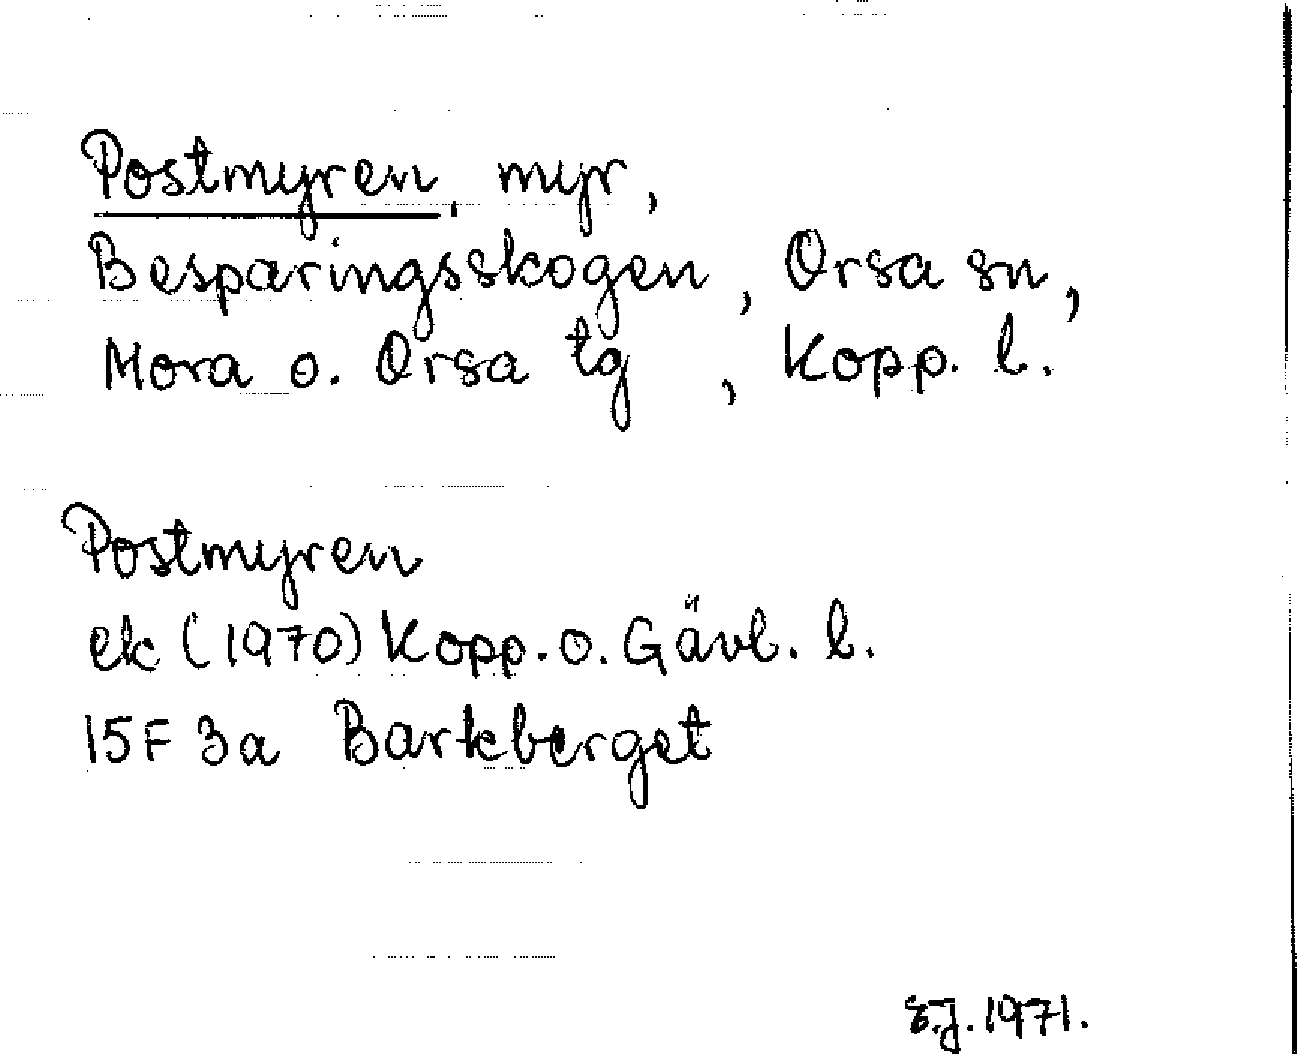 Postmyren, myr,
Besparingsskogen, Orsa sn,
Mora o. Orsa tg, Kopp. l.
Postmyren
ek (1970) Kopp. o. Gävl. l.
15F 3a Barkberget
E.J. 1971.